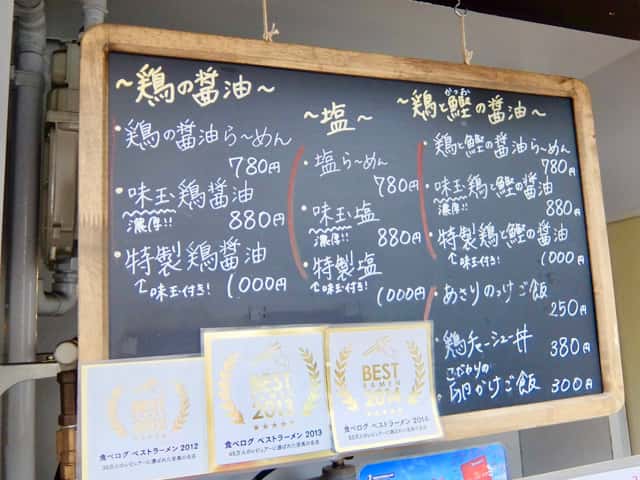 ～鶏の醤油～
・鶏の醤油ら〜めん
780円
・味玉鶏醤油
濃厚!!
880円
・特製鶏醤油
↑味玉付き!
1000円
～塩～
・塩ら〜めん
780円
・味玉塩
濃厚!!
880円
・特製塩
↑味玉付き!
1000円
かつお
～鶏と鰹の醤油～
・鶏と鰹の醤油ら〜めん
780円
・味玉鶏と鰹の醤油
濃厚!!
880円
・特製鶏と鰹の醤油
↑味玉付き!
1000円
・あさりのっけご飯
250円
・鶏チャーシュー丼
380円
こだわりの
・卵かけご飯 300円
BEST
食べログ ベストラーメン 2012
BEST
2013
食べログ ベストラーメン 2013
BEST
RAMEN
2014
食べログ ベストラーメン 2014